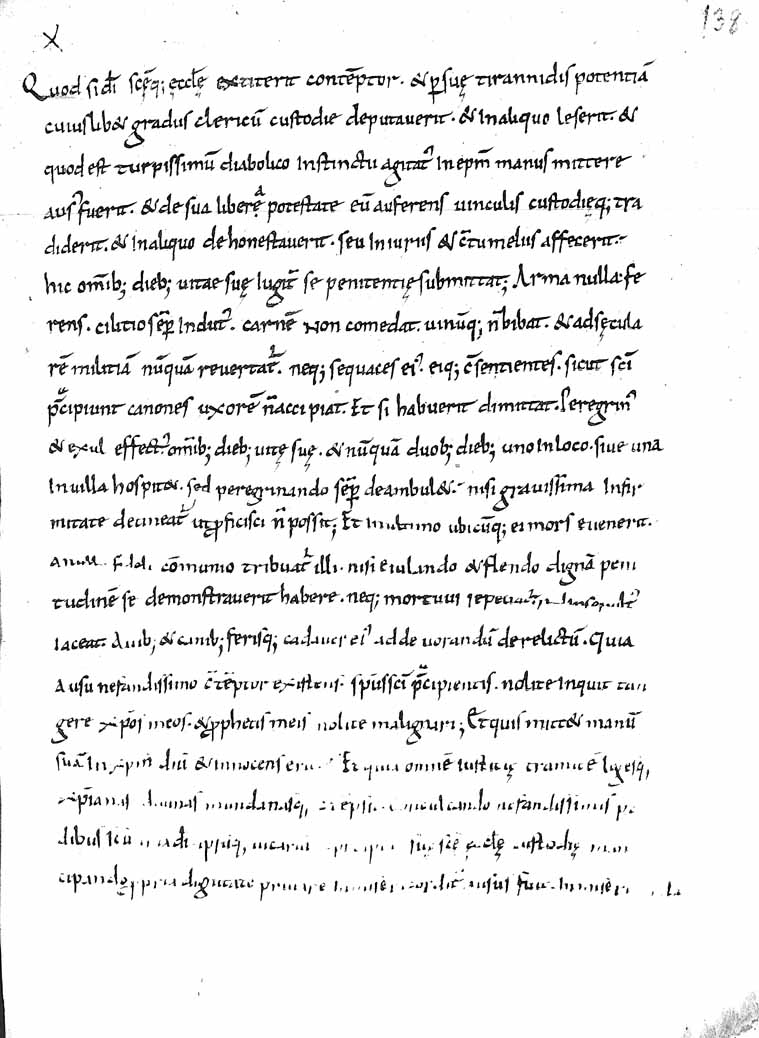 138
X
Quod si dī scēq; ęcclę̄ extiterit contēptor. & p̱ suę tirannidis potentiā
cuiuslib& gradus clericū custodie deputauerit. & In aliquo leserit. &
quod est turpissimū diabolico Instinctu agitat᾽ In ep̄m manus mittere
aus᾽ fuerit. & de sua liberę potestate eū auferens uinculis custodięq; tra
diderit. & In aliquo dehonestauerit. seu Iniuriis & c̄tumeliis affecerit.
hic om̄ib; dieb; uitae suę lugit᾽ se penitentię submittat; Arma nulla fe
rens. cilitio sēp Indut᾽. carnē non comedat. uinūq; n̄ bibat. & ad sęcula
rē militiā nūquā reuertat᾽. neq; sequaces ei᾽. eiq; c̄sentientes. sicut scī
p̄cipiunt canones uxorē n̄ accipiat. Et si habuerit dimittat. Peregrin᾽
& exul effect᾽ om̄ib; dieb; uitę suę. & nūquā duob; dieb; uno In loco. siue una
In uilla hospit&. sed peregrinando sēp deambul&. nisi grauissima Infir
mitate detineat᾽ ut p̱ficisci n̄ possit; Et In ultimo ubicūq; ei mors euenerit.
cōmunio tribuat᾽ illi. nisi eiulando & flendo dignā peni
tudinē se demonstrauerit habere. neq; mortuus
iaceat. Auib; & canib; ferisq; cadauer ei᾽ ad deuorandū derelictū. Quia
ausu nefandissimo c̄tēptor existens sp̄us scī p̄cipientis. nolite Inquit tan
gere xp̄os meos. & p̱phetis meis nolite malignari; Et quis mitt& manū
suā In xp̄m dn̄i & innocens erit Et quia omnē iusticię tramitē legesq;
xp̄ianas diuinas mundanasq; conculcando nefandissimis pe
dibus dī ipsiq; uicarii suę scę̄ ęcclę̄ custodię man
cipando p̱pria dignitate priuare ausus fuit